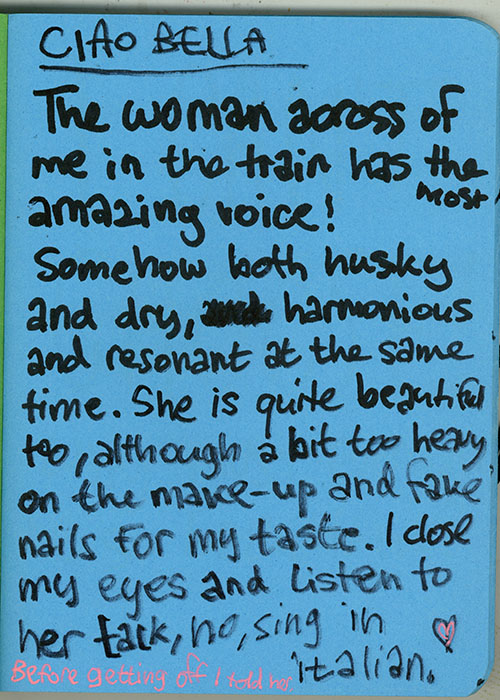 CIAO BELLA
The woman across of
me in the train has the
most
amazing voice!
Somehow both husky
and dry, harmonious
and resonant at the same
time. She is quite beautiful
too, although a bit too heavy
on the make-up and fake
nails for my taste. I close
my eyes and listen to
her talk, no, sing in
italian.
Before getting off I told her.